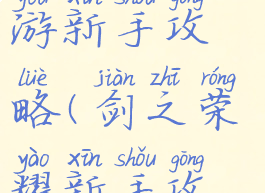 yóu xīn shǒu gōng
游新手攻
lüè jiàn zhī róng
略(剑之荣
yào xīn shǒu gōng
耀新手攻